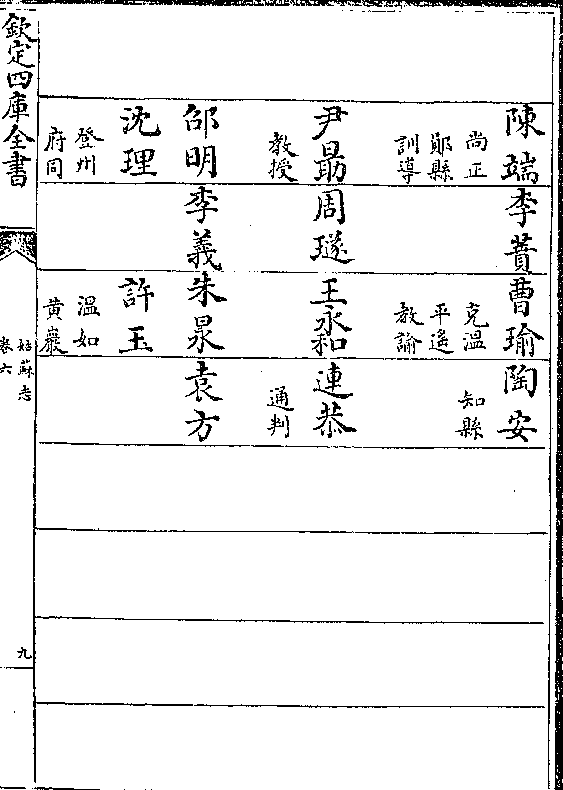 陳端李蕡曹瑜陶安
尚正　克溫　知縣
鄖縣　平遙
訓導　教諭
尹勗周璲王永和連恭
教授　通判
邵明李義朱泉袁方
沈理　許玉
登州　溫如
府同　黃巖
欽定四庫全書
姑蘇志
卷六
九